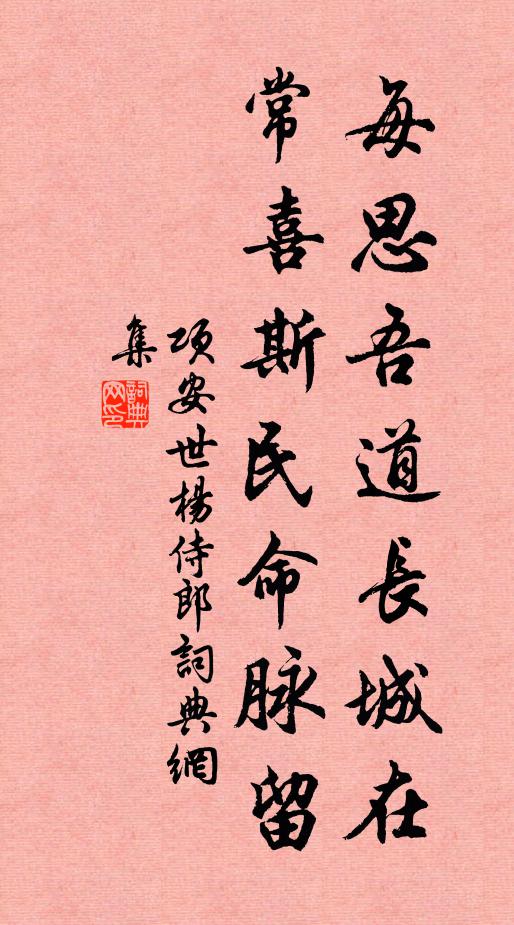 每思吾道長城在
常喜斯民命脉留
項安世楊侍郎詞典網
集
詞典網印